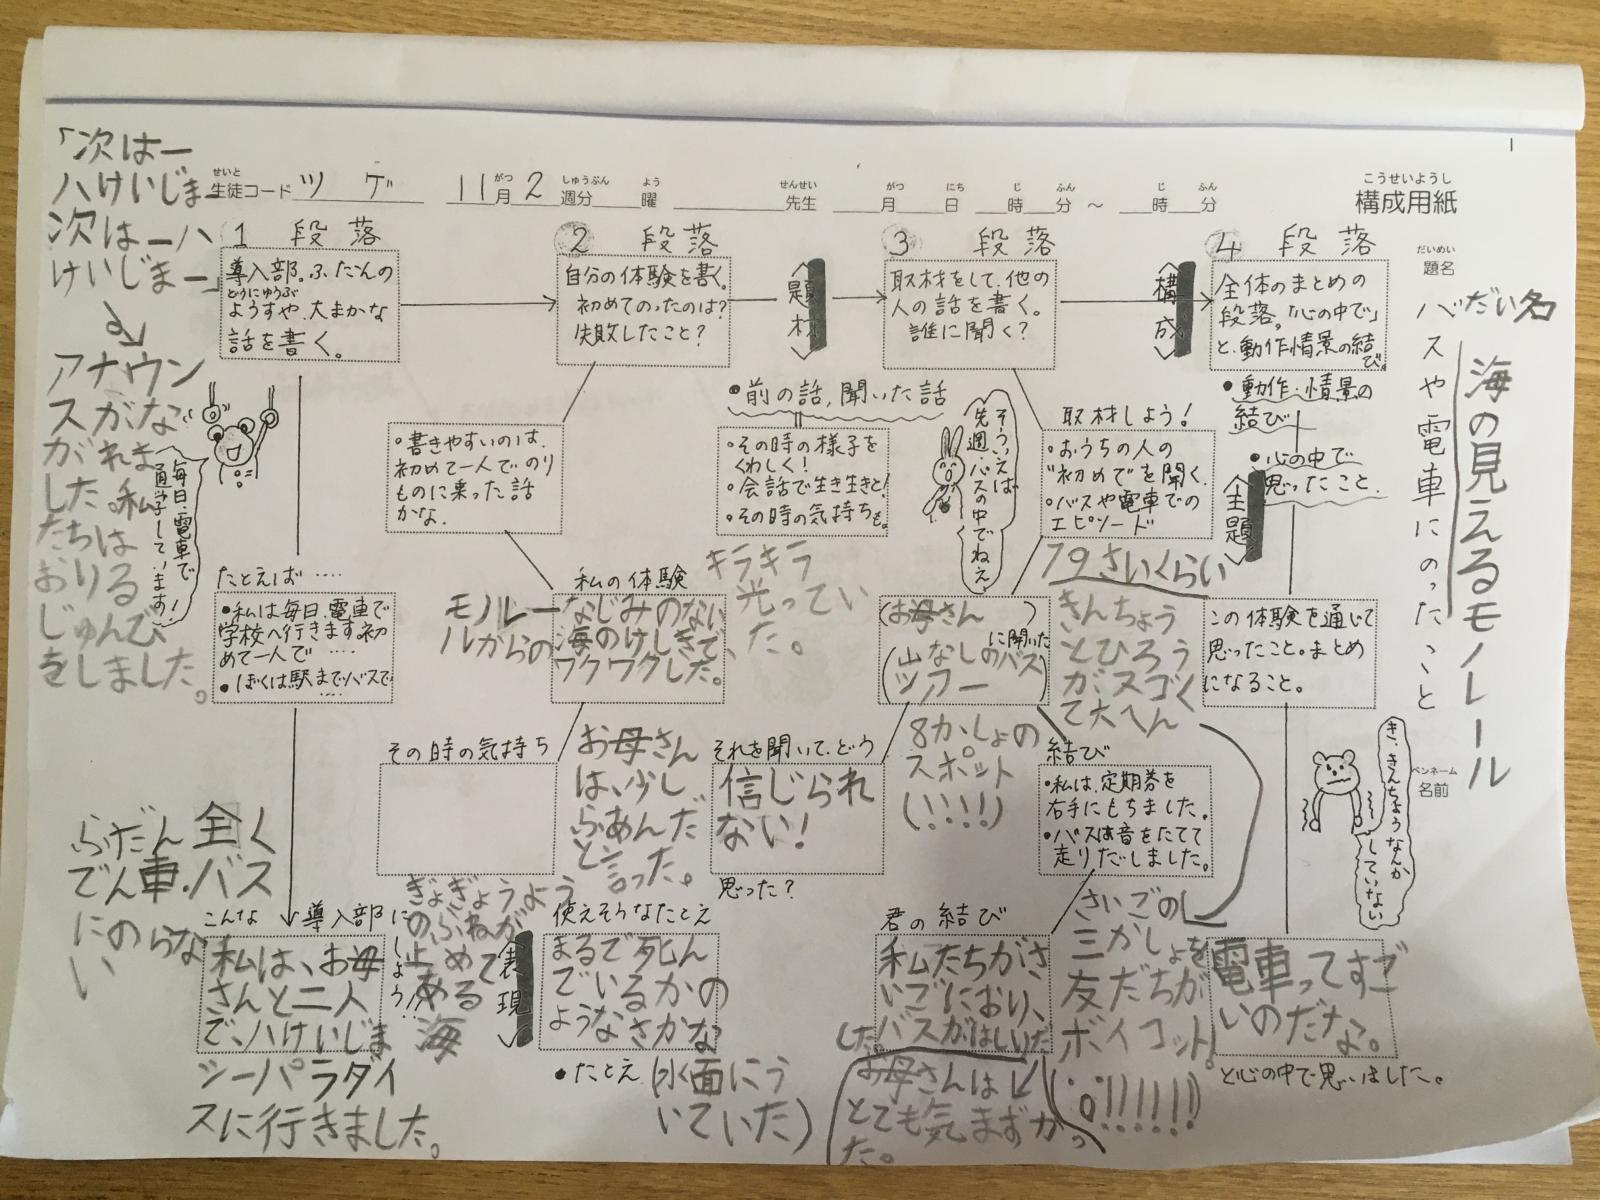 構成用紙
こうせいようし
せいと
生徒コード ツゲ
11月2週分 曜
がつ しゅうぶん よう
せんせい
先生
がつ にち じ ふん じ ふん
月 日 時 分 ～ 時 分
だいめい
題名
だい名
海の見えるモノレール
バスや電車にのったこと
ペンネーム
名前
き、きんちょうなんか
していない
1 段落
導入部。ふだんの
どうにゅうぶ
ようすや、大まかな
話を書く。
「次はー
ハけいじまー
次はーハ
けいじまー」
アナウン
スがな
がれま
した。私
たちは
おりる
じゅんび
をしました。
毎日、電車で
通学しています！
たとえば……
・私は毎日、電車で
学校へ行きます。初
めて一人で……
・ぼくは駅までバスで
……
ふだん全く
でん車・バス
にのらな
い
こんな導入部にしよう!!
私は、お母
さんと二人
で、ハけいじま
シーパラダイ
スに行きました。
2 段落
自分の体験を書く。
初めてのったのは？
失敗したこと？
〈題材〉
・書きやすいのは、
初めて一人でのり
ものに乗った話
かな。
・前の話、聞いた話
・その時の様子を
くわしく！
・会話で生き生きと！
・その時の気持ちも。
私の体験
モノレー
ルからの
なじみのない
海のけしきで、
ワクワクした。
キラキラ
光ってい
た。
その時の気持ち
お母さん
は、少し
ふあんだ
と言った。
ぎょぎょうよう
のふねが
止めて
ある
海
〈表現〉
使えそうなたとえ
まるで死ん
でいるかの
ようなさかな
・たとえ
(水面にう
いていた)
3 段落
取材をして、他の
人の話を書く。
誰に聞く？
〈構成〉
そういえば
先週、バスの中でねえ
取材しよう！
・おうちの人の
"初めて"を聞く。
・バスや電車での
エピソード
19さいくらい
(お母さん )
に聞いた
(山なしのバス
ツアー)
きんちょう
とひろう
がスゴく
て大へん
8かしょの
スポット
(!!!!)
それを聞いて、どう
信じられ
ない！
思った？
結び
・私は、定期券を
右手にもちました。
・バスは音をたてて
走りだしました。
さいごの
三かしょを
友だちが
ボイコット。
君の結び
私たちがさ
いごにおり、
バスがはしいだ
した。
お母さんは
とても気まずかっ
た。
4 段落
全体のまとめの
段落。「心の中で」
と、動作情景の結び。
・動作・情景の
結び
・心の中で
思ったこと。
〈主題〉
この体験を通じて
思ったこと。まとめ
になること。
電車ってすご
いのだなあ。
と心の中で思いました。